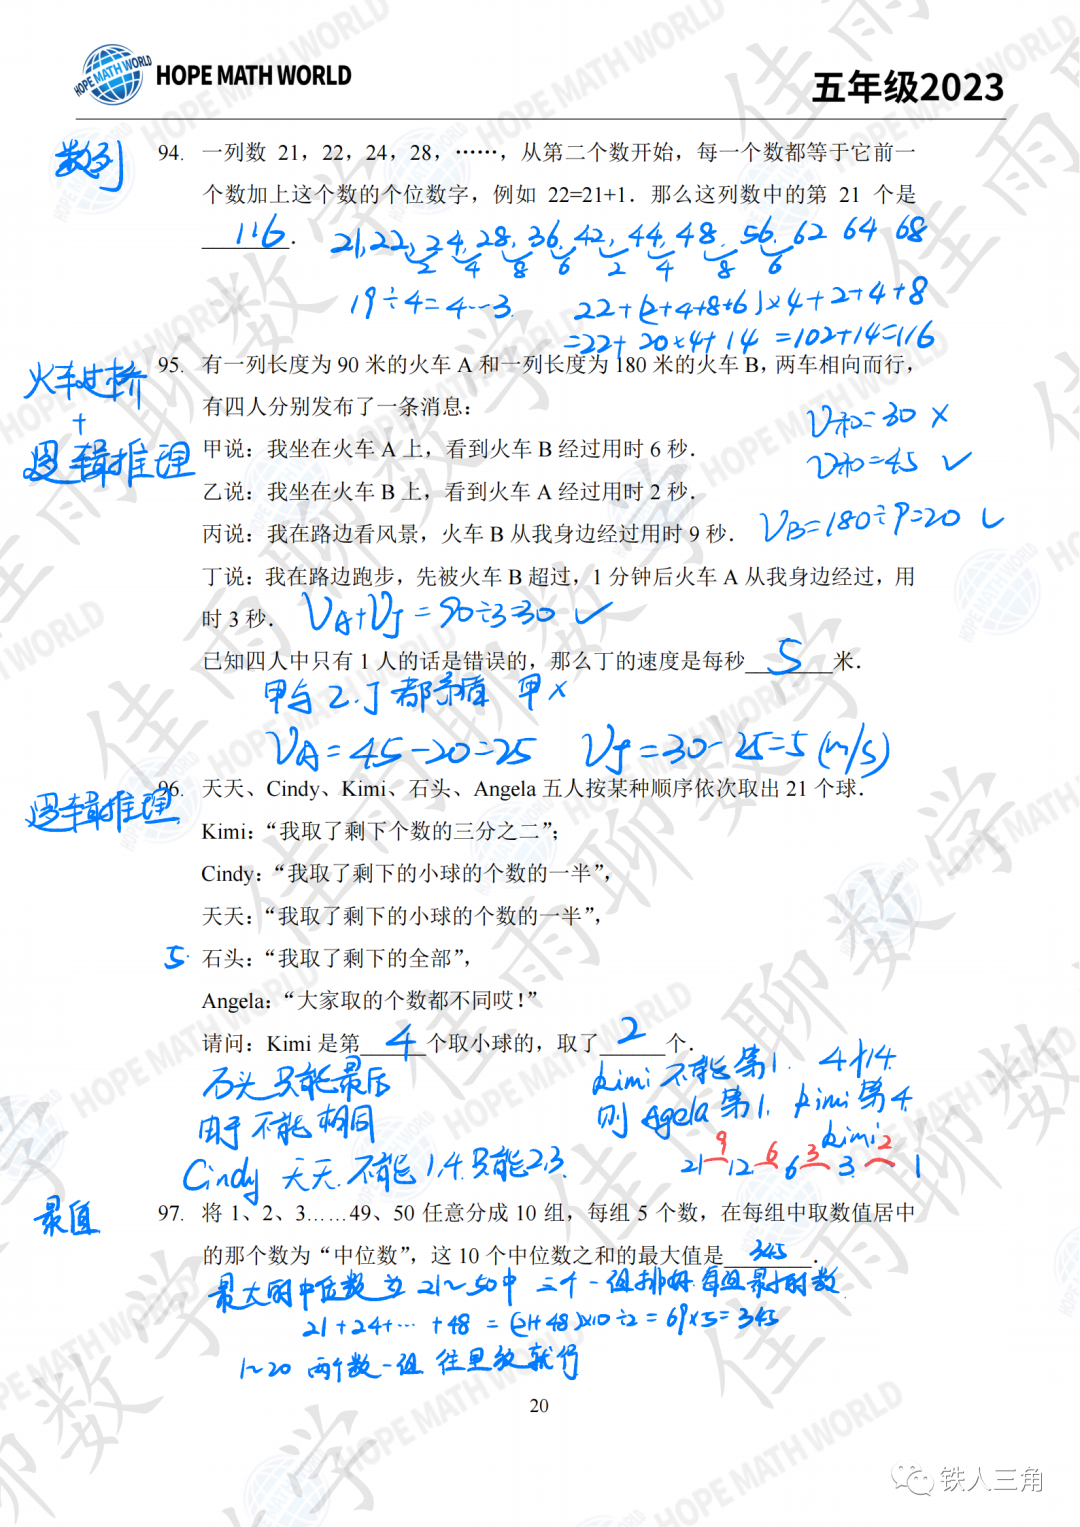 HOPE MATH WORLD
五年级2023
数列
94. 一列数 21，22，24，28，……，从第二个数开始，每一个数都等于它前一
个数加上这个数的个位数字，例如 22=21+1．那么这列数中的第 21 个是
116．
21,22,24,28,36,42,44,48,56,62 64 68
2 4 8 6 2 4 8 6
19÷4=4…3.
22+(2+4+8+6)×4+2+4+8
=22+20×4+14 =102+14=116
火车过桥
+
逻辑推理
95. 有一列长度为 90 米的火车 A 和一列长度为 180 米的火车 B，两车相向而行，
有四人分别发布了一条消息：
V和=30 ×
甲说：我坐在火车 A 上，看到火车 B 经过用时 6 秒．
V和=45 ✓
乙说：我坐在火车 B 上，看到火车 A 经过用时 2 秒．
丙说：我在路边看风景，火车 B 从我身边经过用时 9 秒．
VB=180÷9=20 ✓
丁说：我在路边跑步，先被火车 B 超过，1 分钟后火车 A 从我身边经过，用
时 3 秒．
VA+V丁=90÷3=30 ✓
已知四人中只有 1 人的话是错误的，那么丁的速度是每秒 5 米．
甲与乙.丁都矛盾 甲×
VA=45-20=25 V丁=30-25=5(m/s)
逻辑推理
96. 天天、Cindy、Kimi、石头、Angela 五人按某种顺序依次取出 21 个球．
Kimi：“我取了剩下个数的三分之二”；
Cindy：“我取了剩下的小球的个数的一半”，
天天：“我取了剩下的小球的个数的一半”，
5. 石头：“我取了剩下的全部”，
Angela：“大家取的个数都不同哎！”
请问：Kimi 是第 4 个取小球的，取了 2 个．
石头只能最后
由于不能相同
Cindy 天天.不能1,4.只能2,3.
kimi 不能第1. 4个14.
则 Agela 第1. kimi第4.
kimi
9 6 3 2
21 12 6 3 1
最值
97. 将 1、2、3……49、50 任意分成 10 组，每组 5 个数，在每组中取数值居中
的那个数为“中位数”，这 10 个中位数之和的最大值是 345．
最大的中位数为 21～50中 三个一组排的.每组最小的数
21+24+…+48=(21+48)×10÷2=69×5=345
1～20 两个数一组 往里放就行
20
铁人三角
佳雨聊数学